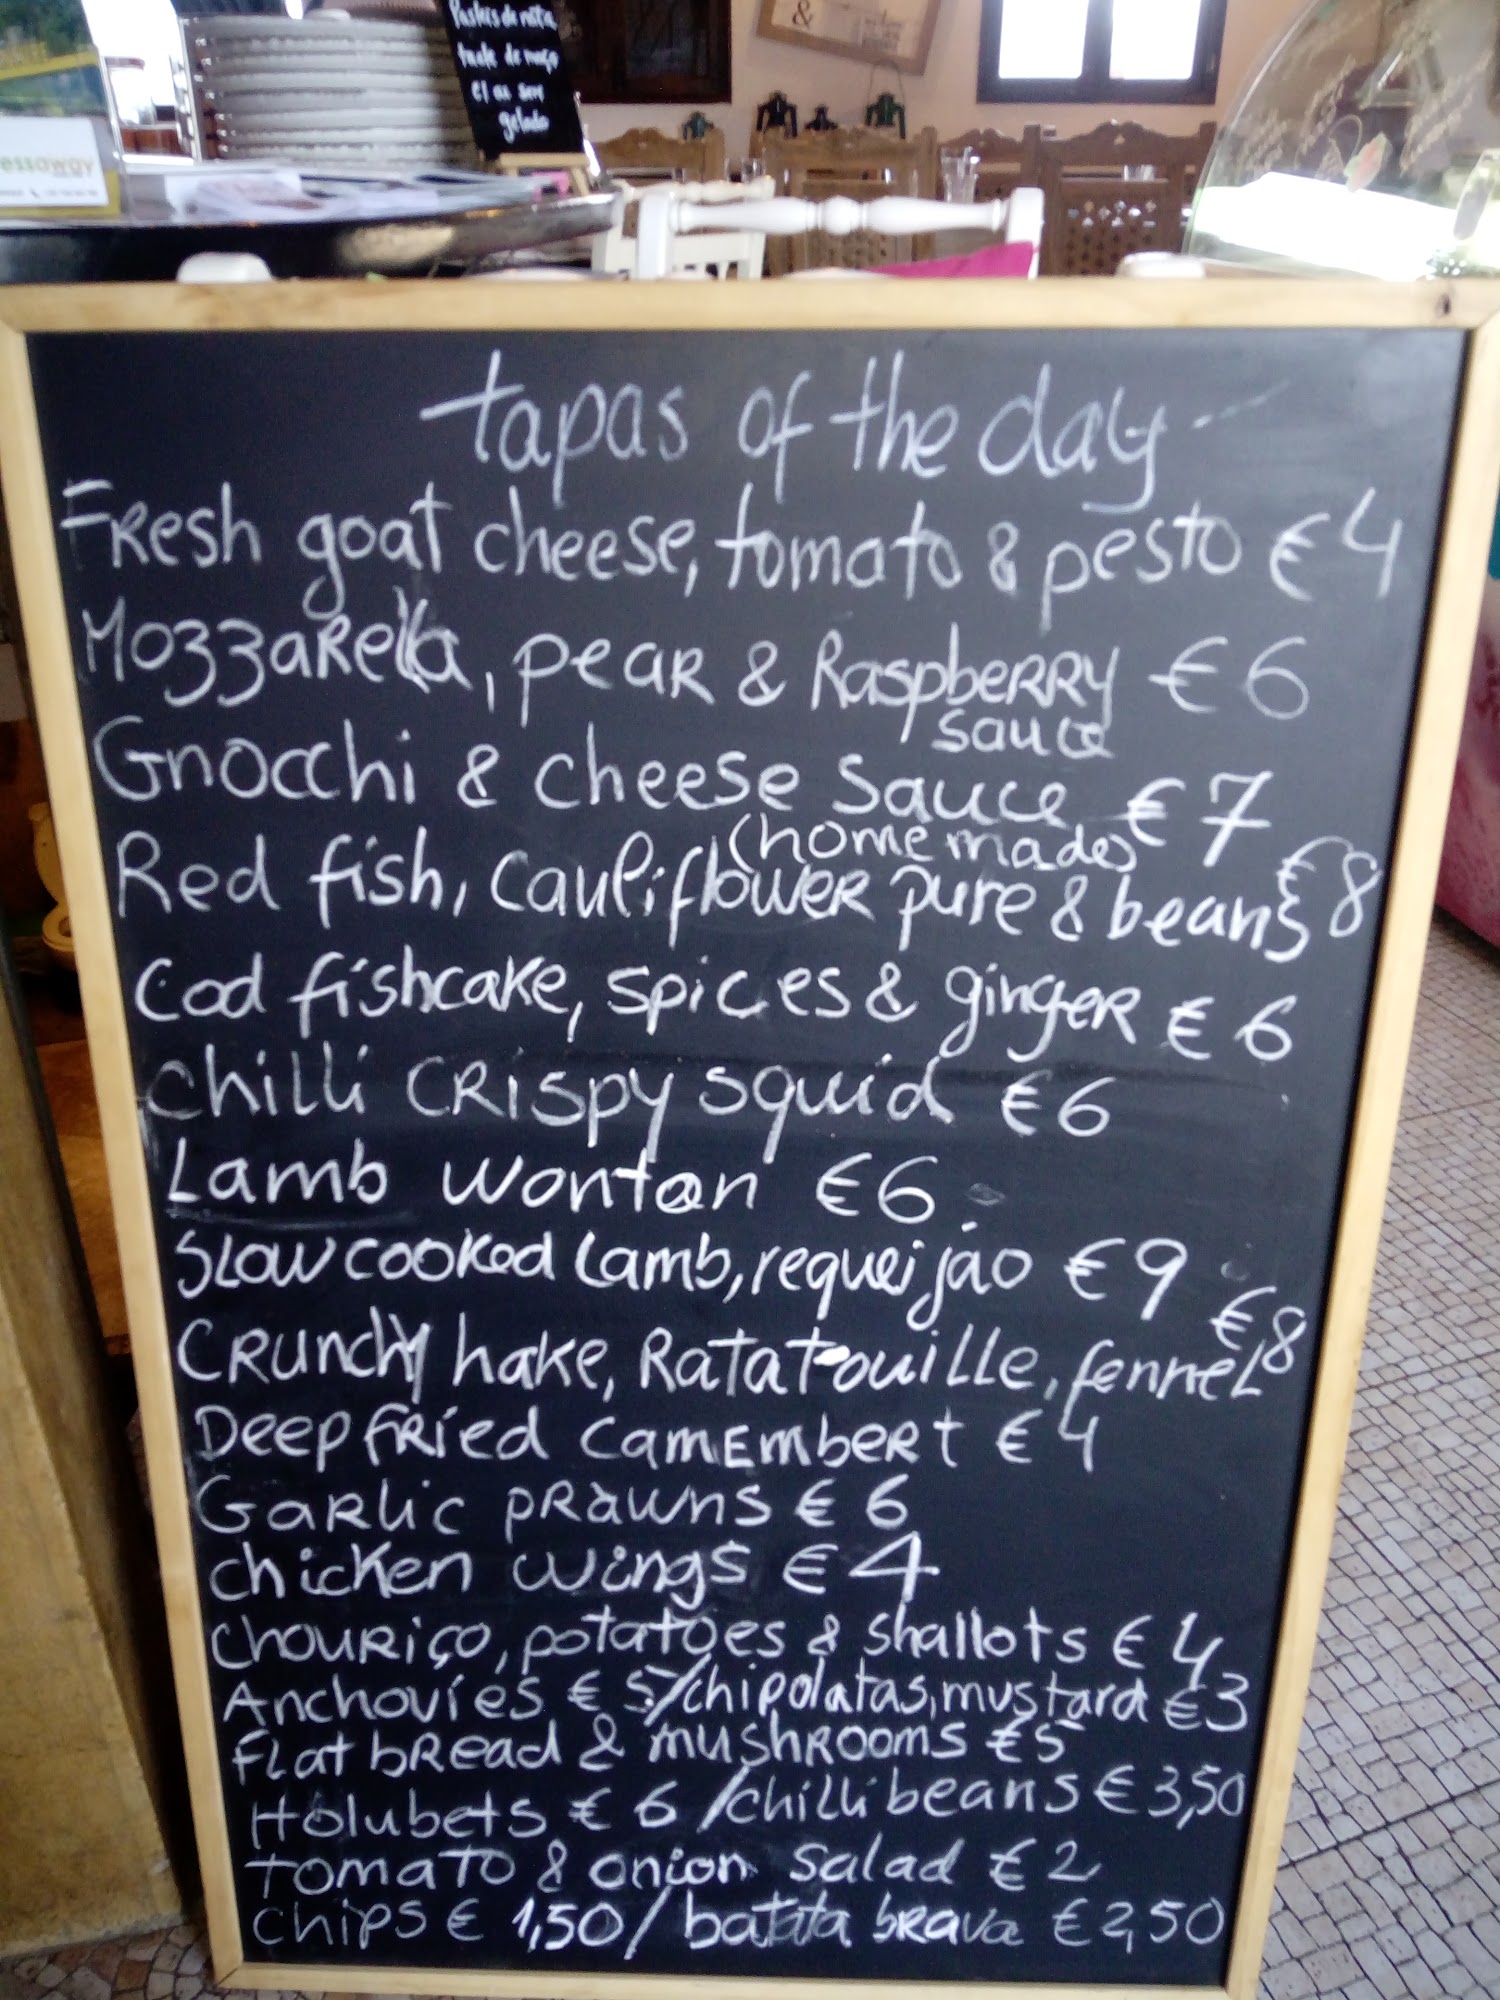 Pasteis de nata
tarte de
€1
gelado
essaway
&
tapas of the day
Fresh goat cheese, tomato & pesto €4
Mozzarella, pear & Raspberry €6
sauce
Gnocchi & cheese sauce €7
(homemade)
Red fish, cauliflower pure & beans €8
Cod fishcake, spices & ginger €6
Chilli CRispy squid €6
Lamb wontan €6
Slow cooked lamb, requeijão €9
CRunchy hake, Ratatouille, fennel €8
Deep fried camembert €4
Garlic prawns €6
chicken wings €4
Chouriço, potatoes & shallots €4
Anchovies €5/chipolatas, mustard €3
flat bread & mushrooms €5
Holubets €6 /chilli beans €3,50
tomato & onion salad €2
chips €1,50/ batata brava €2,50